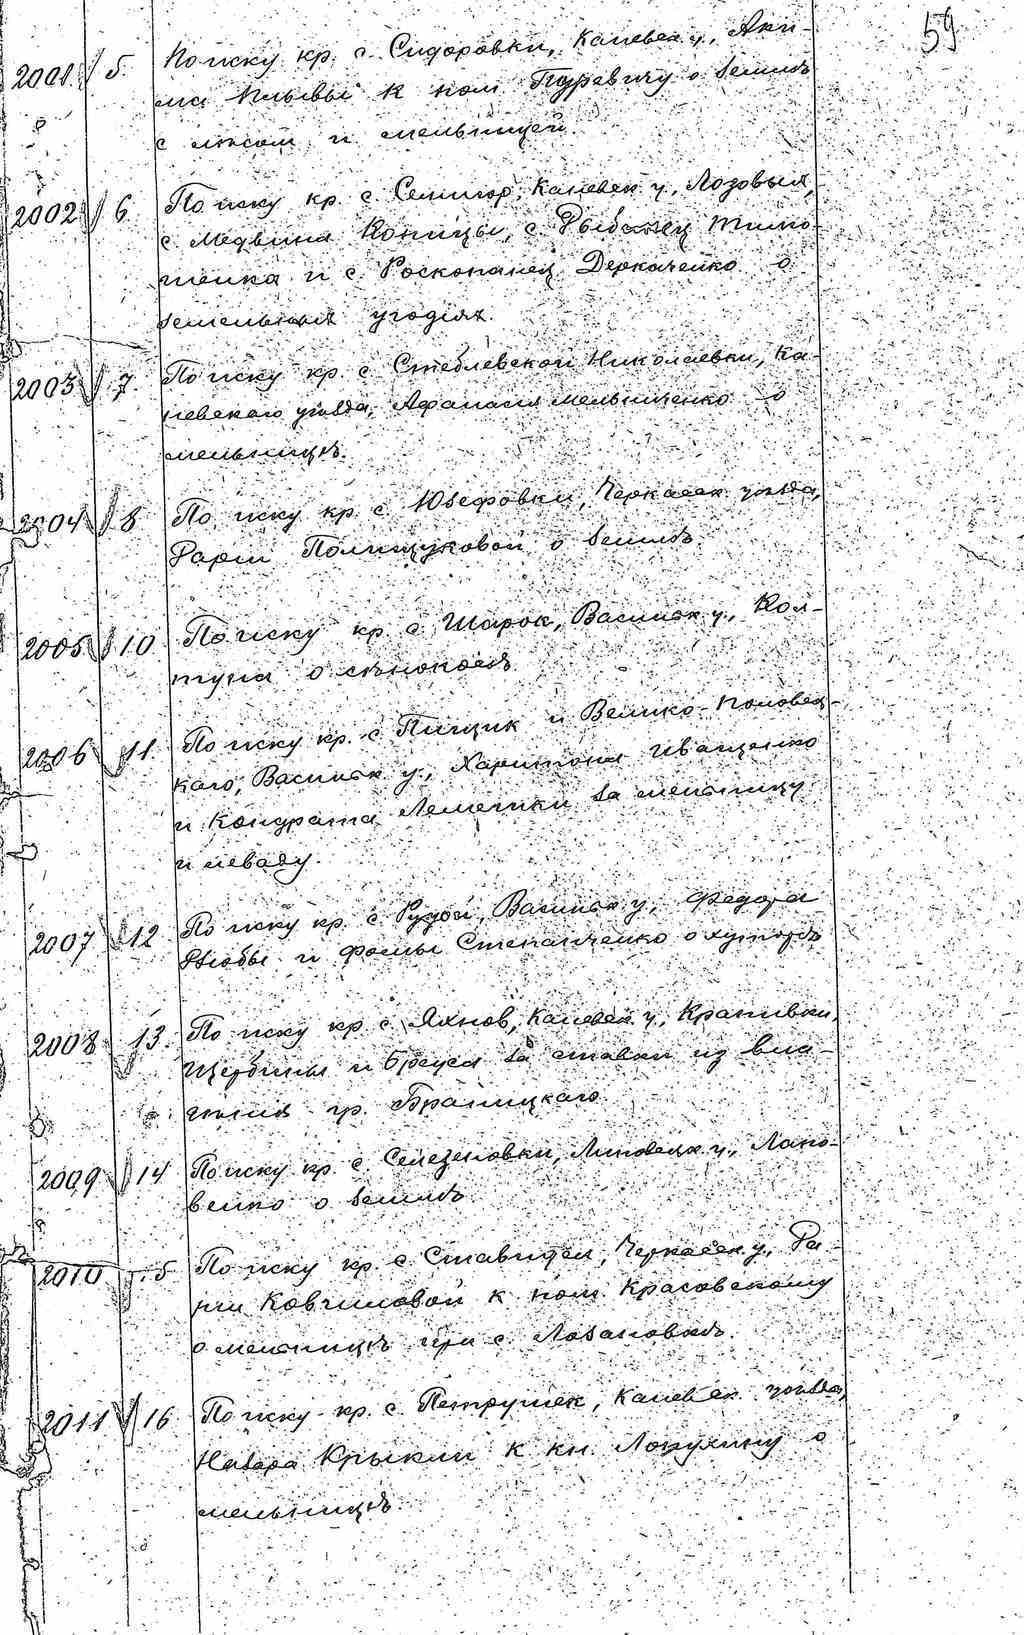 59
2001 5. По иску кр. с. Сидоровки, Каневск. у., Аки-
ма к пом. Гуревичу о землѣ
с лѣсом и мельницей.
2002 6. По иску кр. с. Семигор, Каневск. у., Лозовых,
с. Медвина Коницы, с. Рыбчинец Тимо-
шенка и с. Росконанец Деркаченко о
земельных угодіях.
2003 7. По иску кр. с. Стеблевской Николаевки, Ка-
невскаго уѣзда, Афанасія Мельниченко о
мельницѣ.
2004 8 По иску кр. с. Юзефовки, Черкасск. уѣзда,
Дарьи Полищуковой о землѣ.
2005 10 По иску кр. с. Шарок, Васильк. у., Кол-
туна о сѣнокосѣ.
2006 11. По иску кр. с. Пищик и Велико-Половец-
каго, Васильк. у., Харитона Иващенко
и Кондрата Лемешки за мельницу
и леваду.
2007 12 По иску кр. с. Рудой, Васильк. у., Федора
Дзюбы и Фомы Степанченко о хуторѣ
2008 13. По иску кр. с. Яхнов, Каневск. у., Крапивки,
Щербины и Бреуса за ставки из вла-
дѣнія гр. Браницкаго
2009 14 По иску кр. с. Селезеновки, Липовецк. у., Лано-
венко о землѣ
2010 15 По иску кр. с. Ставидел, Черкасск. у., Да-
рьи Ковтиловой к пом. Красовскому
о мельницѣ при с. Лозановкѣ.
2011 16 По иску кр. с. Петрушек, Каневск. уѣзда,
Назара Крыкли к кн. Лопухину о
мельницѣ.